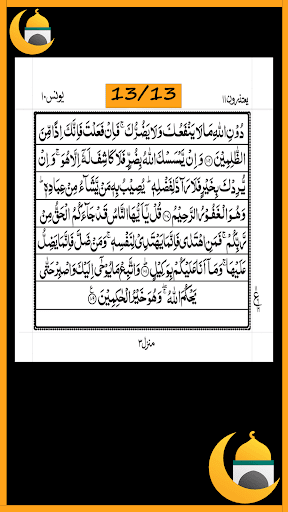 یعتذرون ۱۱
13/13
یونس ۱۰
دُوۡنِ اللّٰهِ مَا لَا یَنۡفَعُكَ وَلَا یَضُرُّكَ ۚ فَاِنۡ فَعَلۡتَ فَاِنَّكَ اِذًا مِّنَ
الظّٰلِمِیۡنَ ﴿۱۰۶﴾ وَاِنۡ یَّمۡسَسۡكَ اللّٰهُ بِضُرٍّ فَلَا كَاشِفَ لَهٗۤ اِلَّا هُوَ ۚ وَاِنۡ
یُّرِدۡكَ بِخَیۡرٍ فَلَا رَآدَّ لِفَضۡلِهٖ ؕ یُصِیۡبُ بِهٖ مَنۡ یَّشَآءُ مِنۡ عِبَادِهٖ ؕ
وَهُوَ الۡغَفُوۡرُ الرَّحِیۡمُ ﴿۱۰۷﴾ قُلۡ یٰۤاَیُّهَا النَّاسُ قَدۡ جَآءَكُمُ الۡحَقُّ مِنۡ
رَّبِّكُمۡ ۚ فَمَنِ اهۡتَدٰی فَاِنَّمَا یَهۡتَدِیۡ لِنَفۡسِهٖ ۚ وَمَنۡ ضَلَّ فَاِنَّمَا یَضِلُّ
عَلَیۡهَا ۚ وَمَاۤ اَنَا عَلَیۡكُمۡ بِوَكِیۡلٍ ﴿۱۰۸﴾ وَاتَّبِعۡ مَا یُوۡحٰۤی اِلَیۡكَ وَاصۡبِرۡ حَتّٰی
یَحۡكُمَ اللّٰهُ ۚ وَهُوَ خَیۡرُ الۡحٰكِمِیۡنَ ﴿۱۰۹﴾
منزل ۳